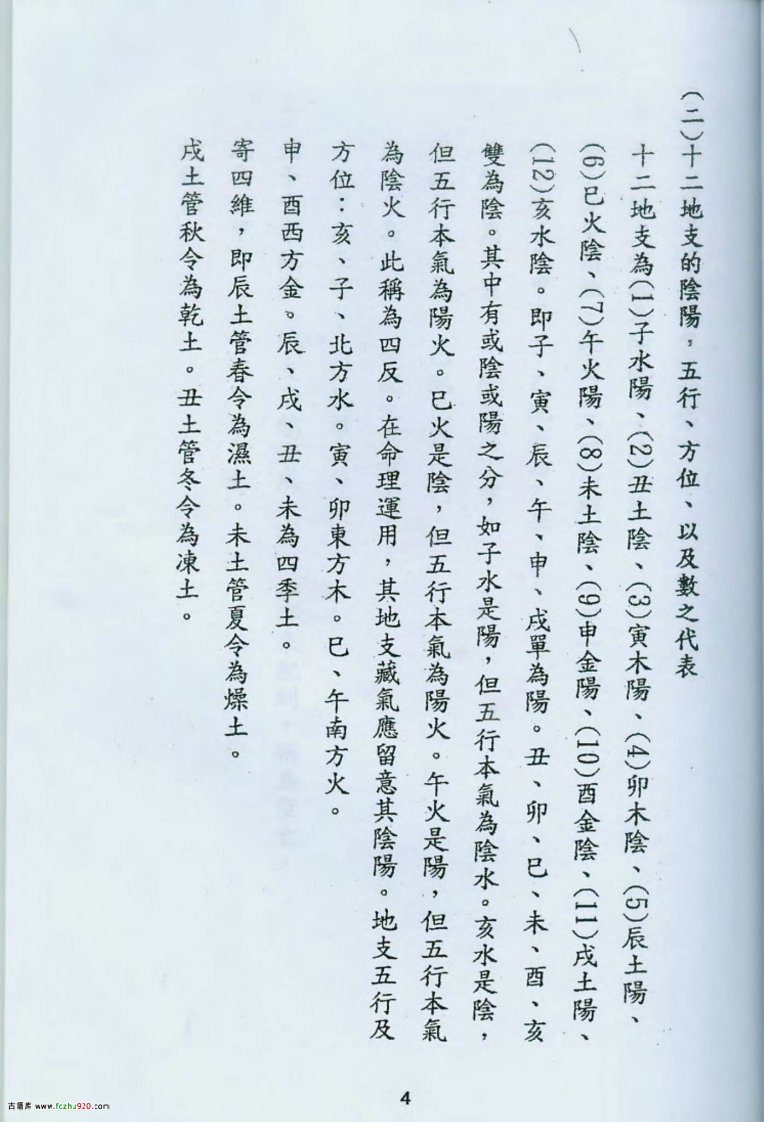 (二)十二地支的陰陽，五行、方位、以及數之代表
十二地支為(1)子水陽、(2)丑土陰、(3)寅木陽、(4)卯木陰、(5)辰土陽、
(6)巳火陰、(7)午火陽、(8)未土陰、(9)申金陽、(10)酉金陰、(11)戌土陽、
(12)亥水陰。即子、寅、辰、午、申、戌單為陽。丑、卯、巳、未、酉、亥
雙為陰。其中有或陰或陽之分，如子水是陽，但五行本氣為陰水。亥水是陰，
但五行本氣為陽火。巳火是陰，但五行本氣為陽火。午火是陽，但五行本氣
為陰火。此稱為四反。在命理運用，其地支藏氣應留意其陰陽。地支五行及
方位：亥、子、北方水。寅、卯東方木。巳、午南方火。
申、酉西方金。辰、戌、丑、未為四季土。
寄四維，即辰土管春令為濕土。未土管夏令為燥土。
戌土管秋令為乾土。丑土管冬令為凍土。
4
古籍库 www.fczhu920.com